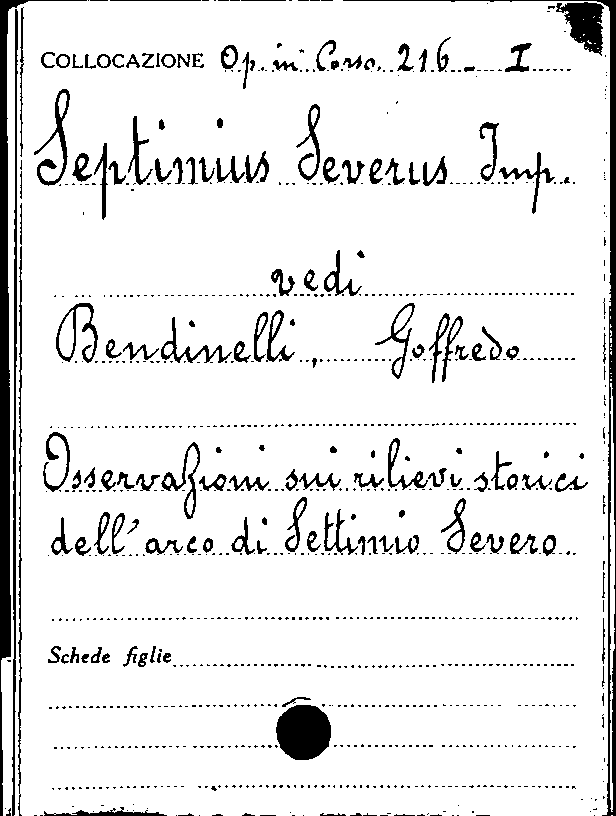 COLLOCAZIONE Op. in Corso. 216 - I
Septimius Severus Imp.
vedi
Bendinelli, Goffredo
Osservazioni sui rilievi storici
dell'arco di Settimio Severo.
Schede figlie